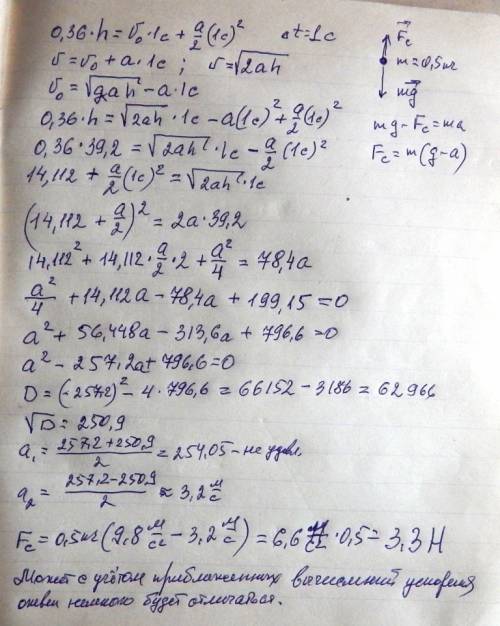 0,36·h = v₀·1c + a/2 (1c)²   Δt=1c
v = v₀ + a·1c ; v = √2ah
v₀ = √2ah - a·1c
0,36·h = √2ah · 1c - a(1c)² + a/2 (1c)²
0,36·39,2 = √2ah · 1c - a/2 (1c)²
14,112 + a/2 (1c)² = √2ah · 1c
(14,112 + a/2)² = 2a·39,2
14,112² + 14,112·a/2·2 + a²/4 = 78,4a
a²/4 + 14,112a - 78,4a + 199,15 = 0
a² + 56,448a - 313,6a + 796,6 = 0
a² - 257,2a + 796,6 = 0
D = (-257,2)² - 4·796,6 = 66152 - 3186 = 62966
√D = 250,9
a₁ = (257,2+250,9)/2 = 254,05 - не удовл.
a₂ = (257,2-250,9)/2 ≈ 3,2 м/с
Fc = 0,5кг (9,8 м/с² - 3,2 м/с²) = 6,6 м/с² · 0,5 = 3,3 Н
Может с учётом приближенных вычислений ускорения
ответ немного будет отличаться.
Fc
m=0,5кг
mg
mg - Fc = ma
Fc = m(g-a)